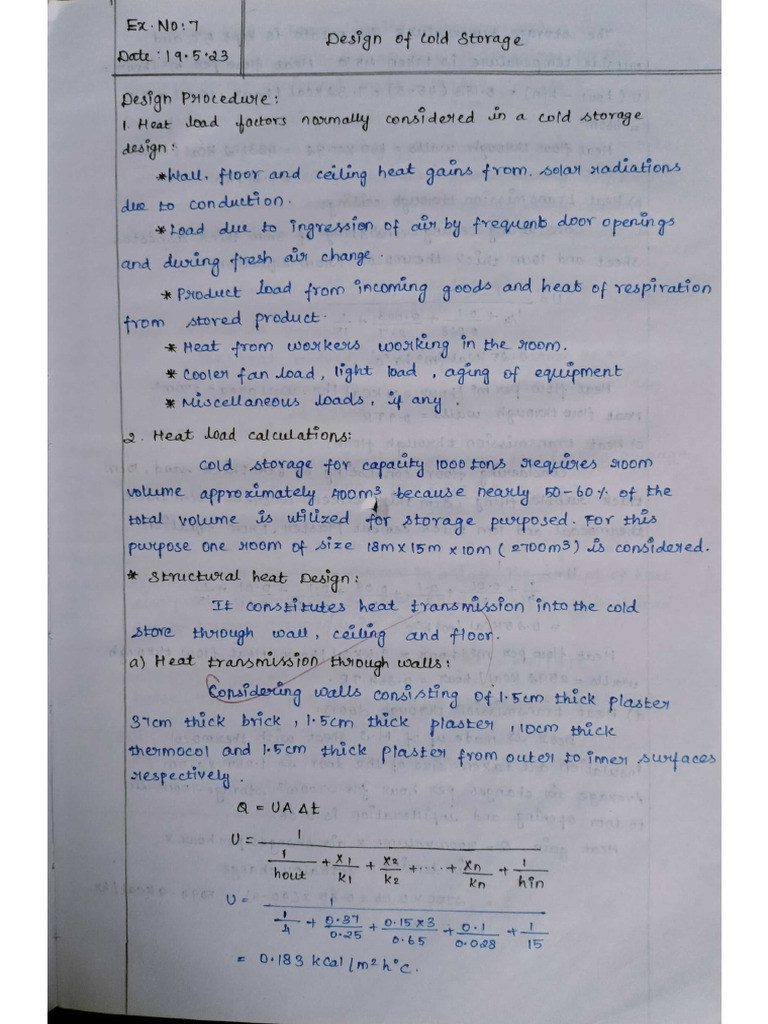 Ex.No:7
Date: 19.5.23
Design of Cold Storage
Design Procedure:
1. Heat load factors normally considered in a cold storage
design:
*Wall, floor and ceiling heat gains from. solar radiations
due to conduction.
*Load due to ingression of air by frequent door openings
and during fresh air change.
* Product load from incoming goods and heat of respiration
from stored product.
* Heat from workers working in the room.
* Cooler fan load, light load, aging of equipment
* Miscellaneous loads, if any.
2. Heat load calculations:
Cold storage for capacity 1000 tons requires room
volume approximately 400m³ because nearly 50-60% of the
total volume is utilized for storage purposed. For this
purpose one room of size 18m x 15m x 10m (2700m³) is considered.
* Structural heat Design:
It constitutes heat transmission into the cold
store through wall, ceiling and floor.
a) Heat transmission through walls:
Considering walls consisting of 1.5cm thick plaster
37cm thick brick, 1.5cm thick plaster, 10cm thick
thermocol and 1.5cm thick plaster from outer to inner surfaces
respectively.
Q = UA Δt
U = 1 / (1/hout + x1/k1 + x2/k2 + .... + xn/kn + 1/hin)
U = 1 / (1/4 + 0.37/0.25 + 0.15x3/0.65 + 0.1/0.028 + 1/15)
= 0.183 kcal/m²h°c.